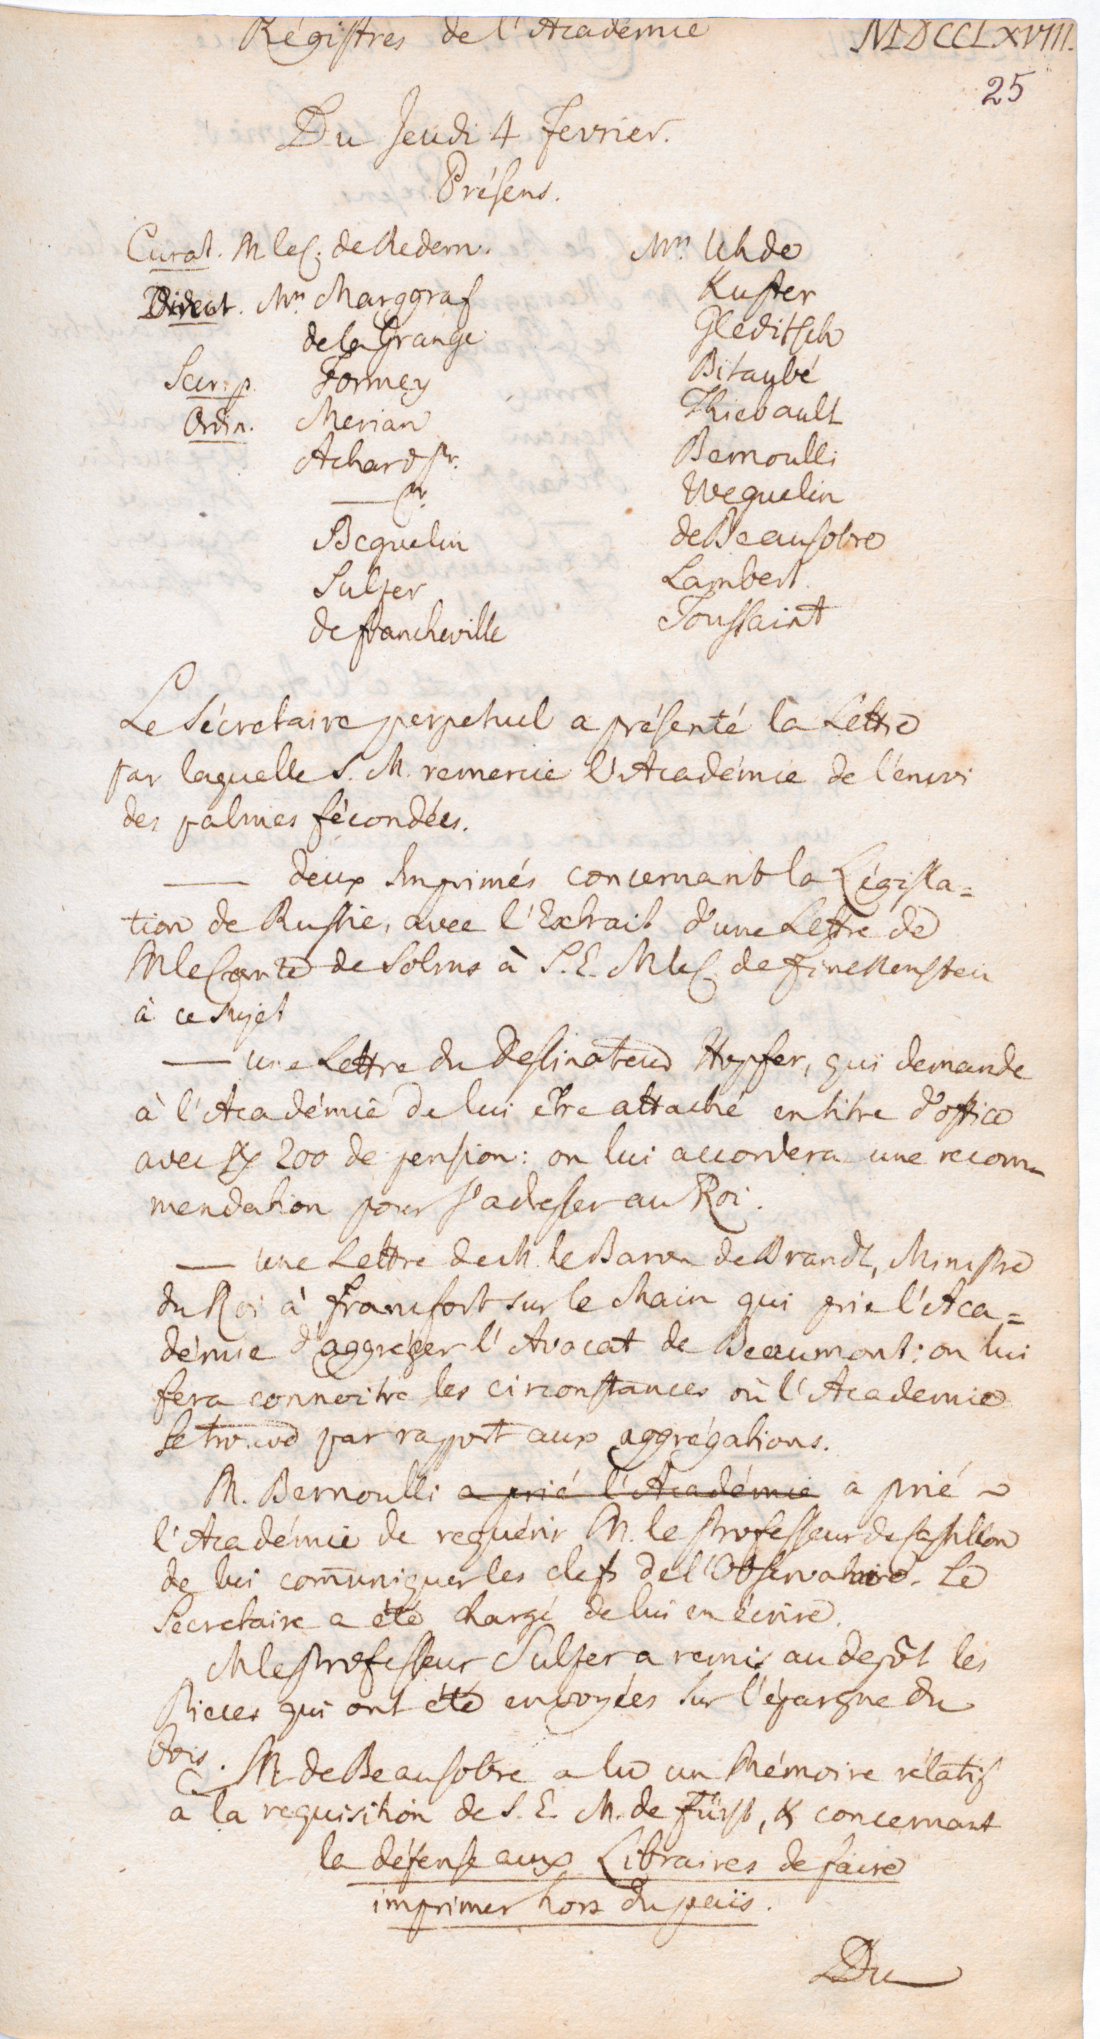 Régistres de l'Académie MDCCLXVIII.
25
Du Jeudi 4 Fevrier.
Présens.
Curat. M le C. de Redern.
Direct. Mrs Marggraf
de la Grange
Secr. p. Formey
Ordin. Merian
Achard Sr.
— Jr.
Beguelin
Sulzer
de Francheville
Mrs Uhde
Kuster
Gleditsch
Bitaubé
Thiebault
Bernoulli
Weguelin
de Beausobre
Lambert
Toussaint
Le Sécretaire perpetuel a présenté la Lettre
par laquelle S. M. remercie l'Académie de l'envoi
des palmes fécondées.
— deux Imprimés concernant la Législa=
tion de Russie, avec l'Extrait d'une Lettre de
M le Comte de Solms à S. E. M le C. de Finckenstein
à ce sujet
— une Lettre du Dessinateur Hopfer, qui demande
à l'Académie de lui être attaché en titre d'office
avec 200 de pension: on lui accordera une recom-
mendation pour s'adresser au Roi.
— une Lettre de M. le Baron de Brandt, Ministre
du Roi à Francfort sur le Main qui prie l'Aca=
démie d'aggréger l'Avocat de Beaumont: on lui
fera connoitre les circonstances où l'Academie
se trouve par rapport aux aggrégations.
M. Bernoulli a prié l'Académie a prié
l'Académie de requérir M. le Professeur de Castillon
de lui communiquer les clefs de l'Observatoire. Le
Secretaire a été chargé de lui en écrire.
M le Professeur Sulzer a remis au depôt les
Pieces qui ont été envoyées sur l'épargne du
bois.
M. de Beausobre a lu un Mémoire rélatif
à la requisition de S. E. M. de Fürst, & concernant
la défense aux Libraires de faire
imprimer hors du païs.
Du